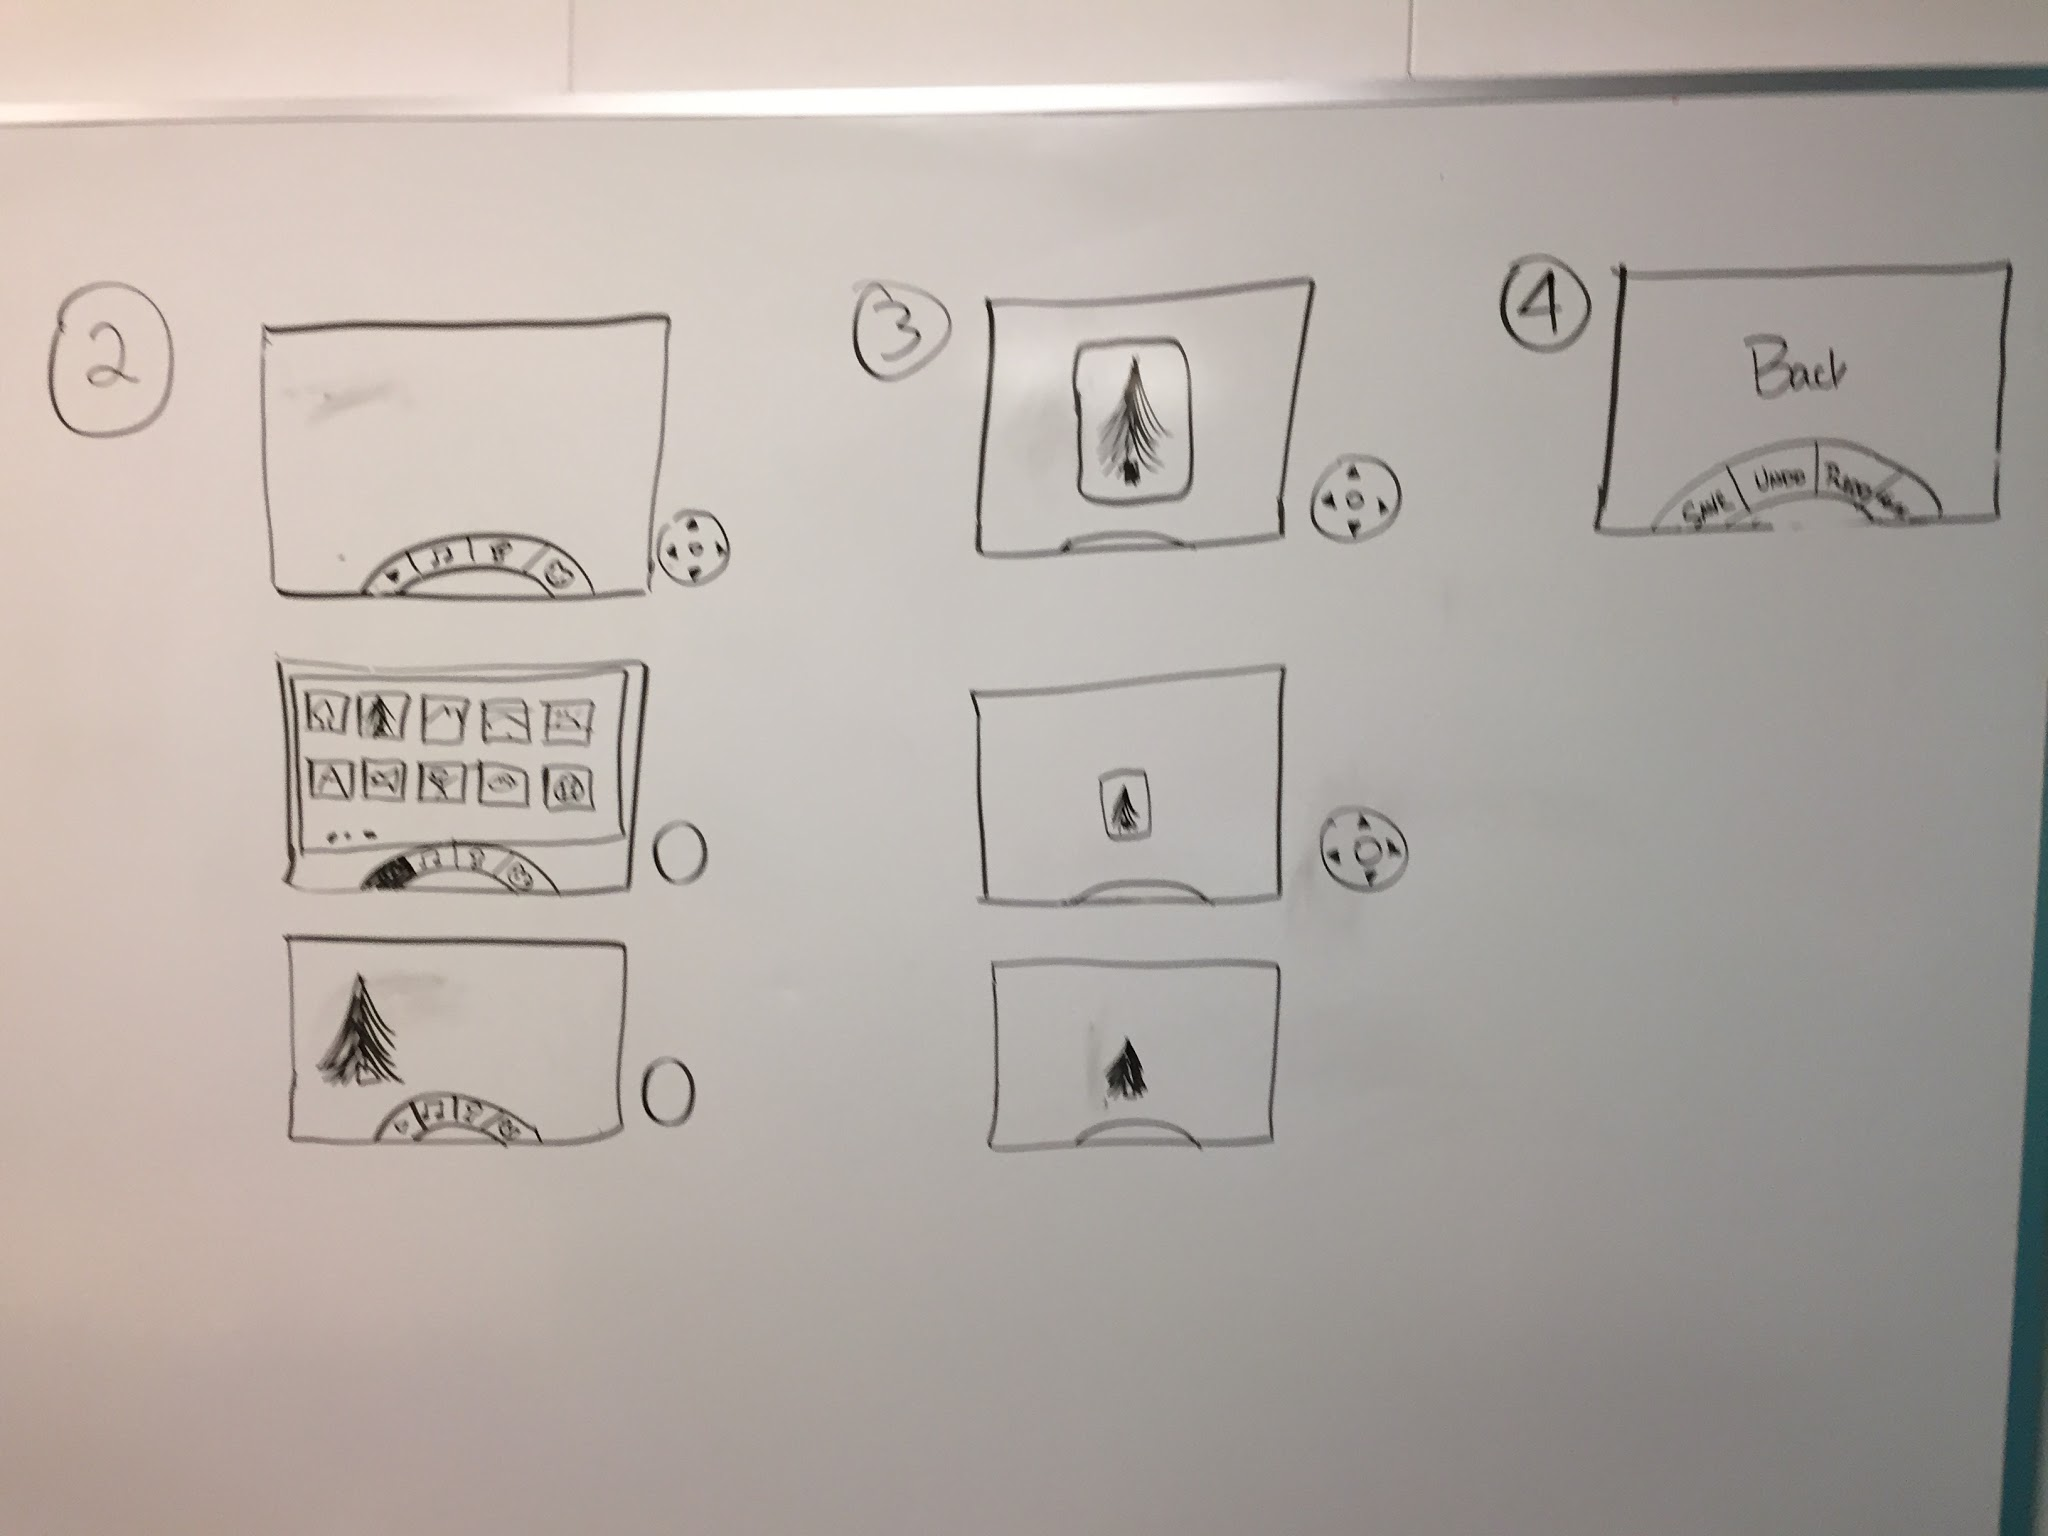 2
3
4
Back
SAVE UNDO REDO